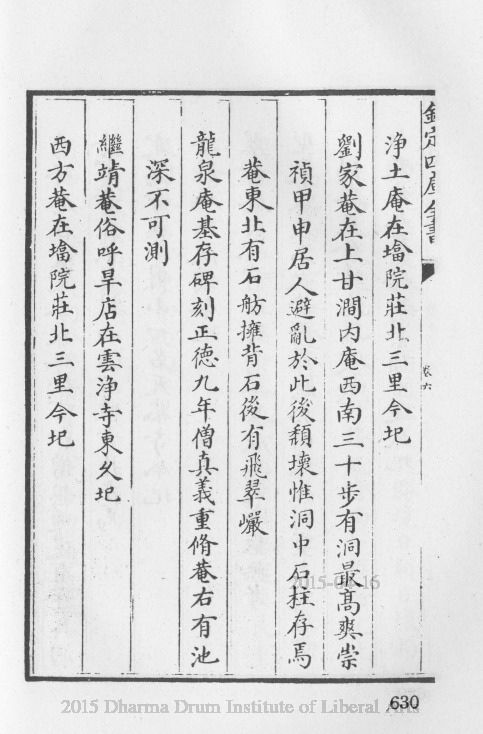 欽定四庫全書
卷六
淨土庵在墖院莊北三里今圯
劉家菴在上甘澗内庵西南三十步有洞最髙爽崇
禎甲申居人避亂於此後頽壞惟洞中石柱存焉
菴東北有石舫擁背石後有飛翠巘
龍泉庵基存碑刻正德九年僧真義重脩菴右有池
深不可測
繼靖菴俗呼旱店在雲淨寺東久圯
西方菴在墖院莊北三里今圯
2015-04-16
630
2015 Dharma Drum Institute of Liberal Arts